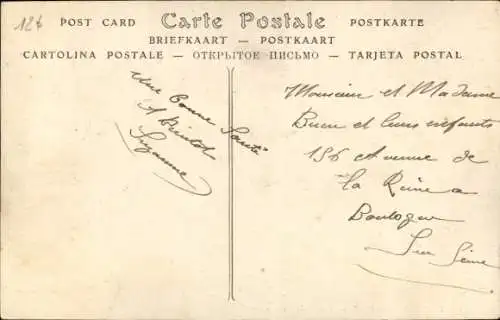 12€
POST CARD Carte Postale POSTKARTE
BRIEFKAART — POSTKAART
CARTOLINA POSTALE — ОТКРЫТОЕ ПИСЬМО — TARJETA POSTAL
Une bonne Santé
A Bientot
Suzanne
Monsieur et Madame
et leurs enfants
156 Avenue de
La Reine a
Boulogne
Sur Seine